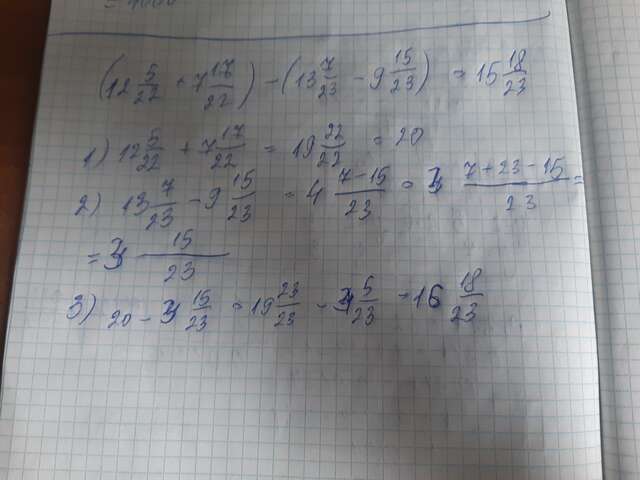 = 4000
(12 5/22 + 7 17/22) - (13 7/23 - 9 15/23) = 15 18/23
1) 12 5/22 + 7 17/22 = 19 22/22 = 20
2) 13 7/23 - 9 15/23 = 4 (7-15)/23 = 3 (7+23-15)/23 =
= 3 15/23
3) 20 - 3 15/23 = 19 23/23 - 3 5/23 = 16 18/23